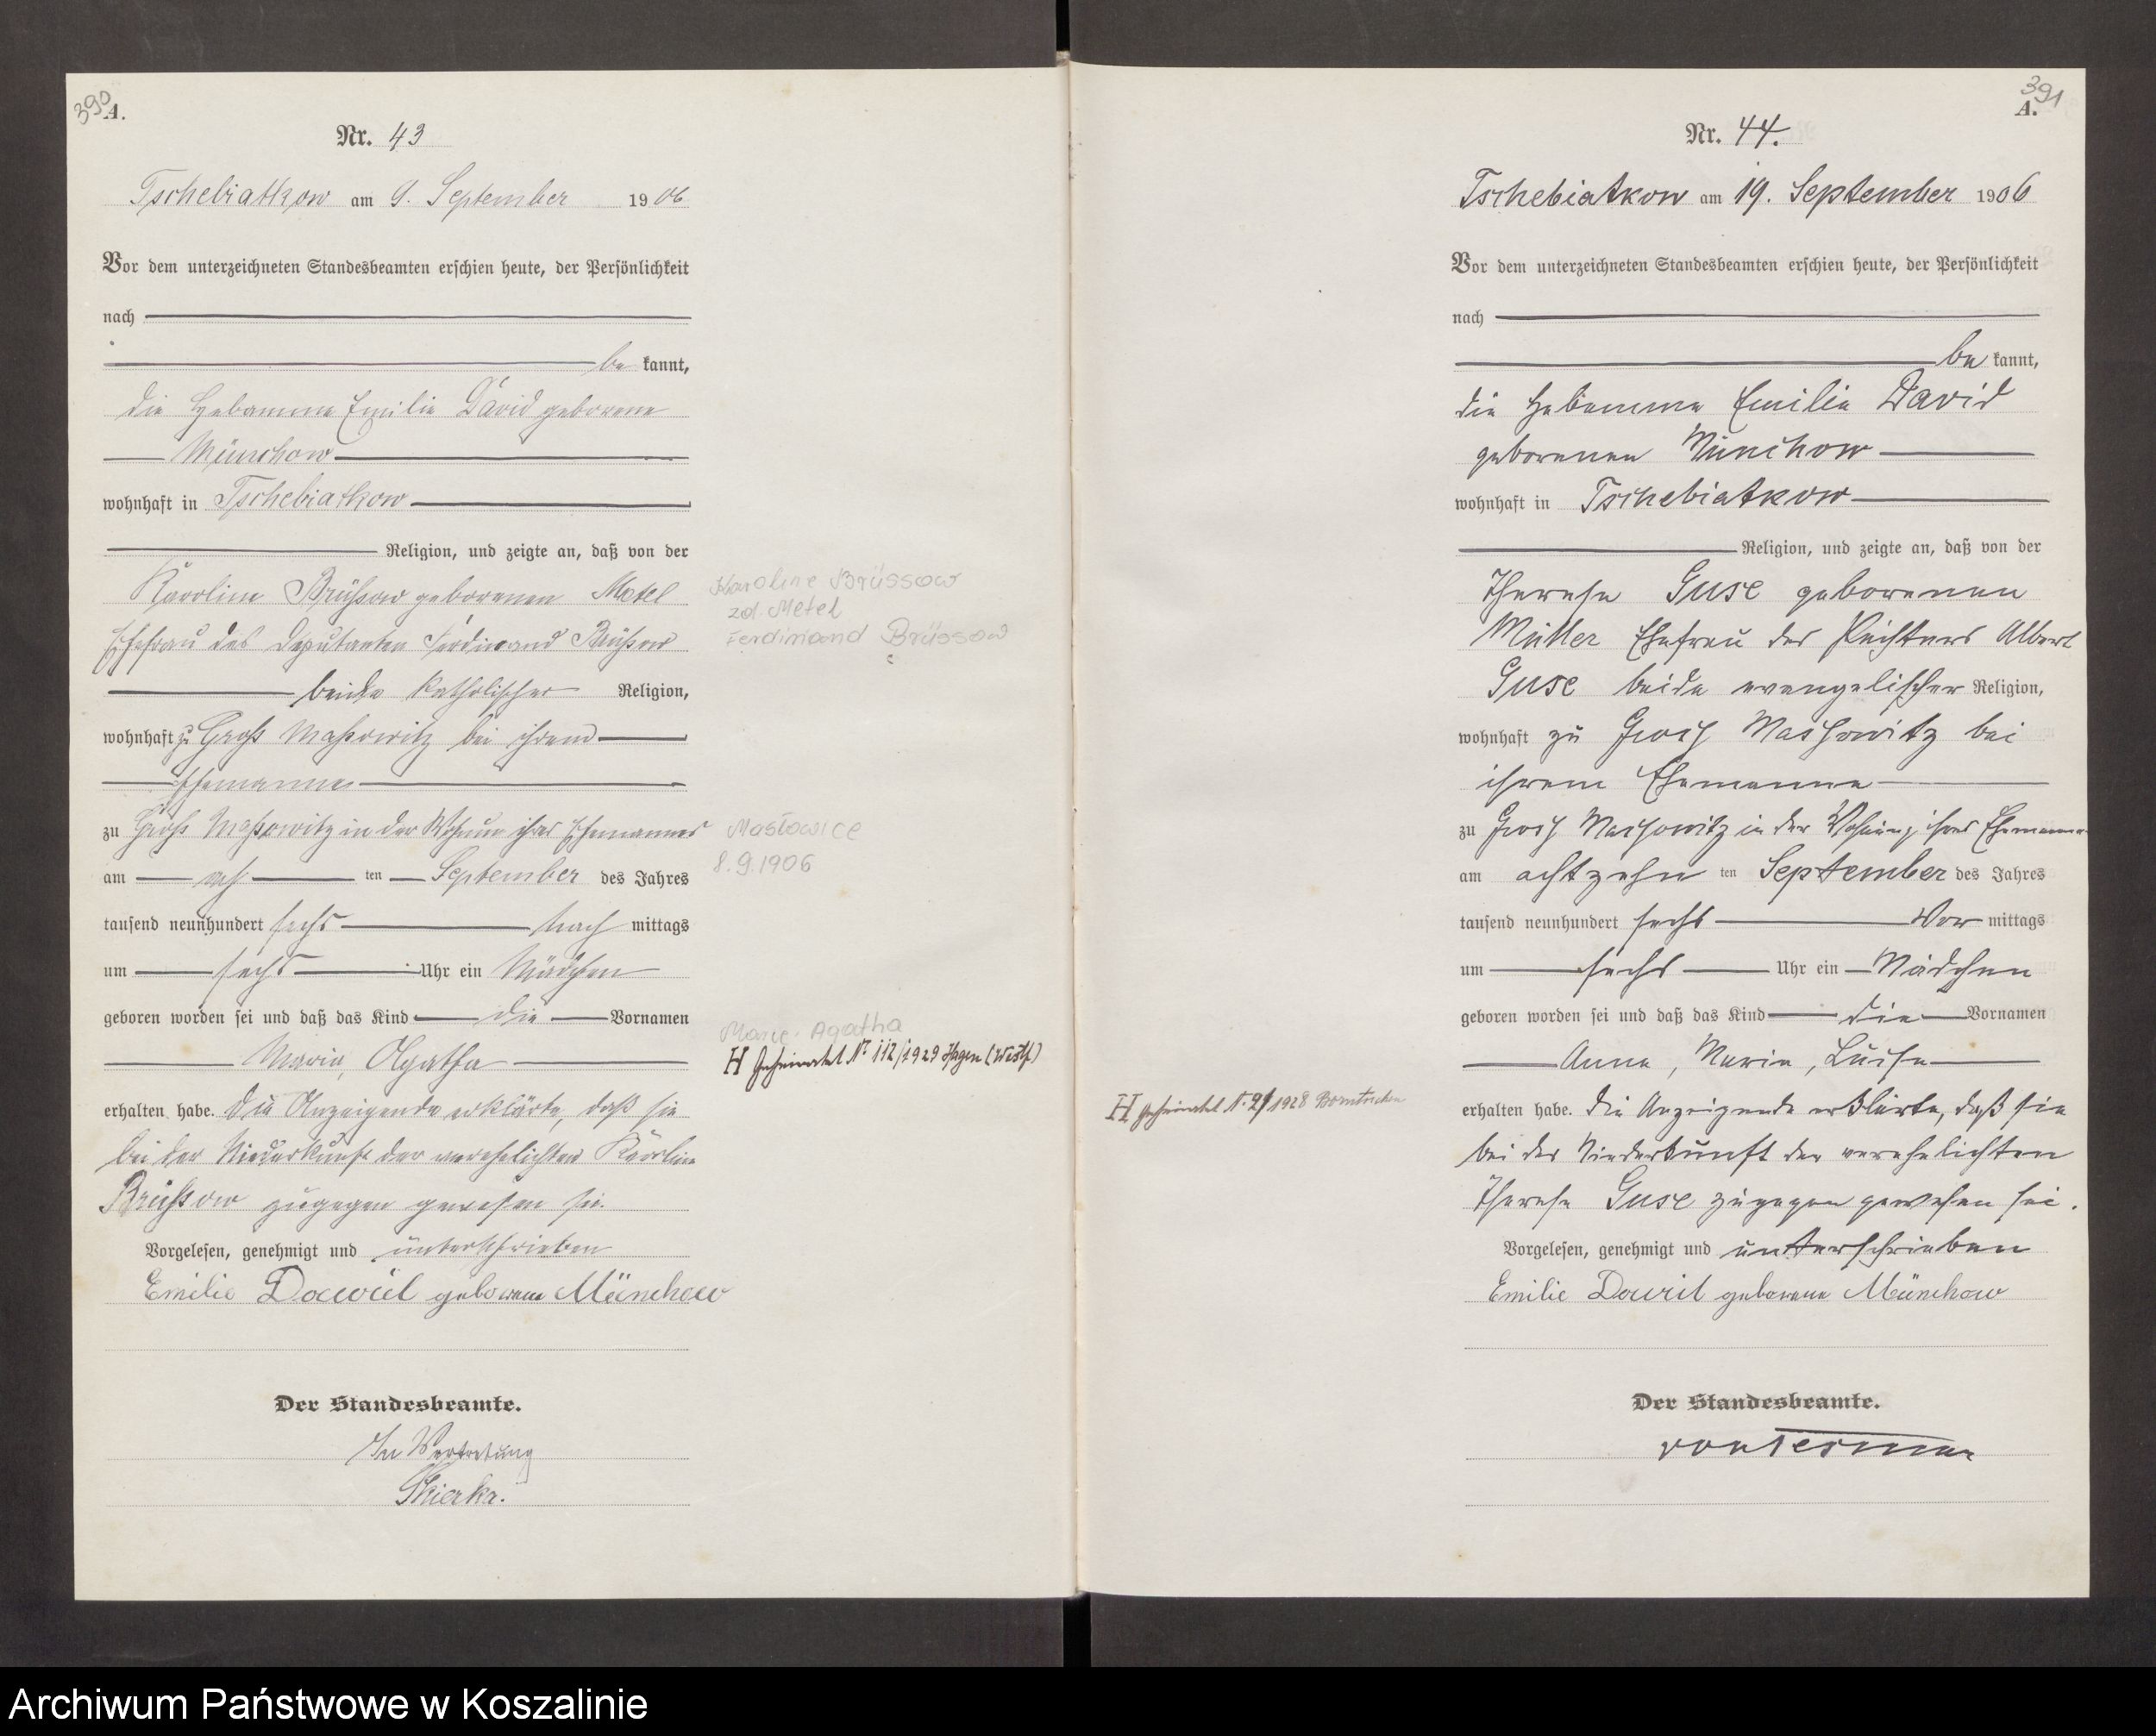 390
A.
Nr. 43
Tschebiatkow am 9. September 1906
Vor dem unterzeichneten Standesbeamten erschien heute, der Persönlichkeit
nach
be kannt,
die Hebamme Emilie David geborene
Münchow
wohnhaft in Tschebiatkow
Religion, und zeigte an, daß von der
Karoline Brüßow geborenen Metel
Ehefrau des Deputanten Ferdinand Brüßow
beide katholischer Religion,
wohnhaft zu Groß Maßowitz bei ihrem
Ehemanne
zu Groß Maßowitz in der Wohnung ihres Ehemannes
am acht ten September des Jahres
tausend neunhundert sechs Nach mittags
um sechs Uhr ein Mädchen
geboren worden sei und daß das Kind die Vornamen
Maria, Agatha
erhalten habe. Die Anzeigende erklärte, daß sie
bei der Niederkunft der verehelichten Karoline
Brüßow zugegen gewesen sei.
Vorgelesen, genehmigt und unterschrieben
Emilie Dawid geborene Münchow
Der Standesbeamte.
In Vertretung
Karoline Brüssow
zd. Metel
Ferdinand Brüssow
Masłowice
8.9.1906
Marie Agatha
H Geheiratet Nr 112/1929 Hagen (Westf)
391
A.
Nr. 44.
Tschebiatkow am 19. September 1906
Vor dem unterzeichneten Standesbeamten erschien heute, der Persönlichkeit
nach
be kannt,
die Hebamme Emilie David
geborenen Münchow
wohnhaft in Tschebiatkow
Religion, und zeigte an, daß von der
Therese Guse geborenen
Müller Ehefrau des Pächters Albert
Guse beide evangelischer Religion,
wohnhaft zu Gross Massowitz bei
ihrem Ehemanne
zu Gross Massowitz in der Wohnung ihres Ehemannes
am achtzehn ten September des Jahres
tausend neunhundert sechs Vor mittags
um sechs Uhr ein Mädchen
geboren worden sei und daß das Kind die Vornamen
Anna, Marie, Luise
H geheiratet N. 2/1928
erhalten habe. Die Anzeigende erklärte, daß sie
bei der Niederkunft der verehelichten
Therese Guse zugegen gewesen sei.
Vorgelesen, genehmigt und unterschrieben
Emilie Dawid geborene Münchow
Der Standesbeamte.
Archiwum Państwowe w Koszalinie